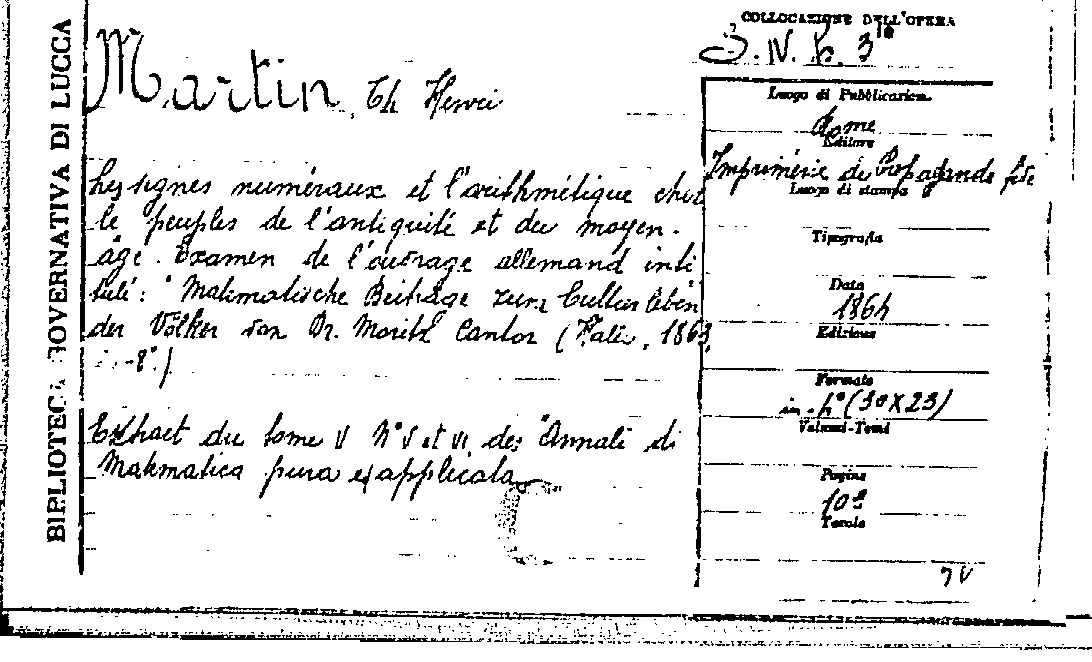 BIBLIOTECA GOVERNATIVA DI LUCCA
COLLOCAZIONE DELL'OPERA
IV. 3
Martin, Th Henri
Luogo di Pubblicazion.
Rome
Editore
Imprimerie de Propagande fide
Luogo di stampa
Tipografia
Data
1864
Edizione
Formato
in-4° (30X23)
Volumi-Tomi
Pagine
Tavole
Les signes numéraux et l'arithmétique chez
le peuples de l'antiquité et du moyen-
âge. Examen de l'ouvrage allemand inti
tulé: "Matematische Beitrage zum Culturleben
der Völker von Dr. Moritz Cantor (Halle, 1863,
in-8°)
Extract du tome V N° V et VI des "Annali di
Matematica pura ed applicata